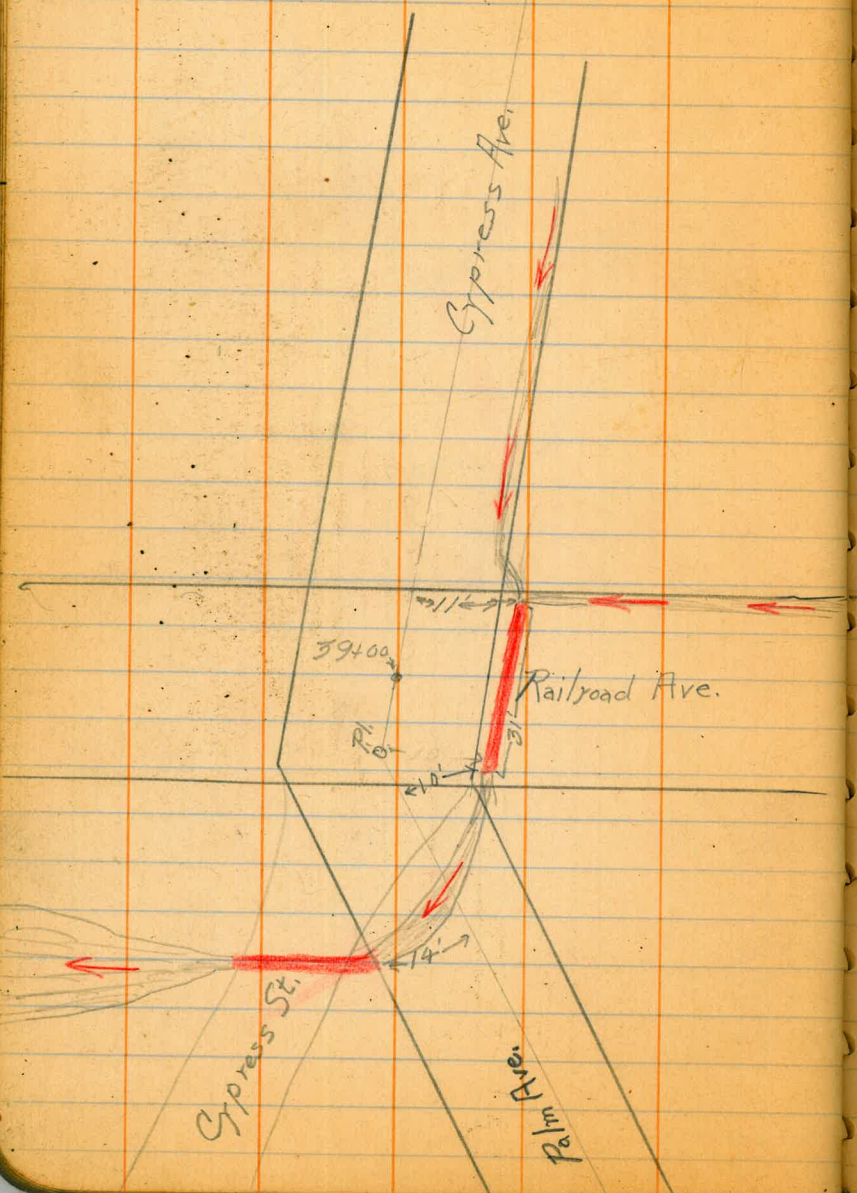 Cypress Ave.
11'
39+00
Railroad Ave.
P.I.
31'
10'
14'
Cypress St.
Palm Ave.